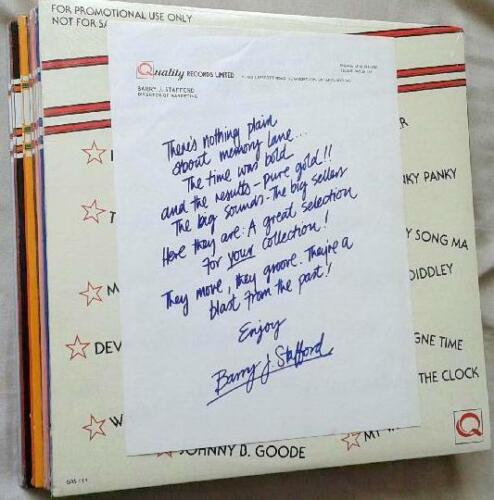 FOR PROMOTIONAL USE ONLY
NOT FOR SA
Quality RECORDS LIMITED
BARRY J. STAFFORD
DIRECTOR OF MARKETING
There's nothing plain
about memory lane...
The time was bold
and the results - pure gold!!
The big sounds. The big sellers
Here they are: A great selection
For your Collection!
They move, they groove. They're a
blast from the past!
Enjoy
Barry J. Stafford
ER
KY PANKY
Y SONG MA
DIDDLEY
GNE TIME
THE CLOCK
DEV
JOHNNY B. GOODE
MY
Q